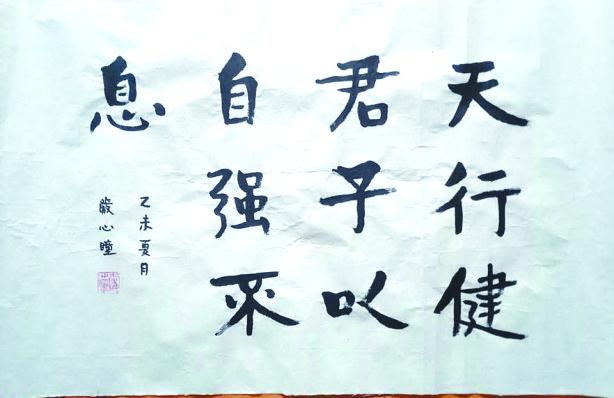 天行健
君子以
自强不
息
乙未夏月
严心瞳